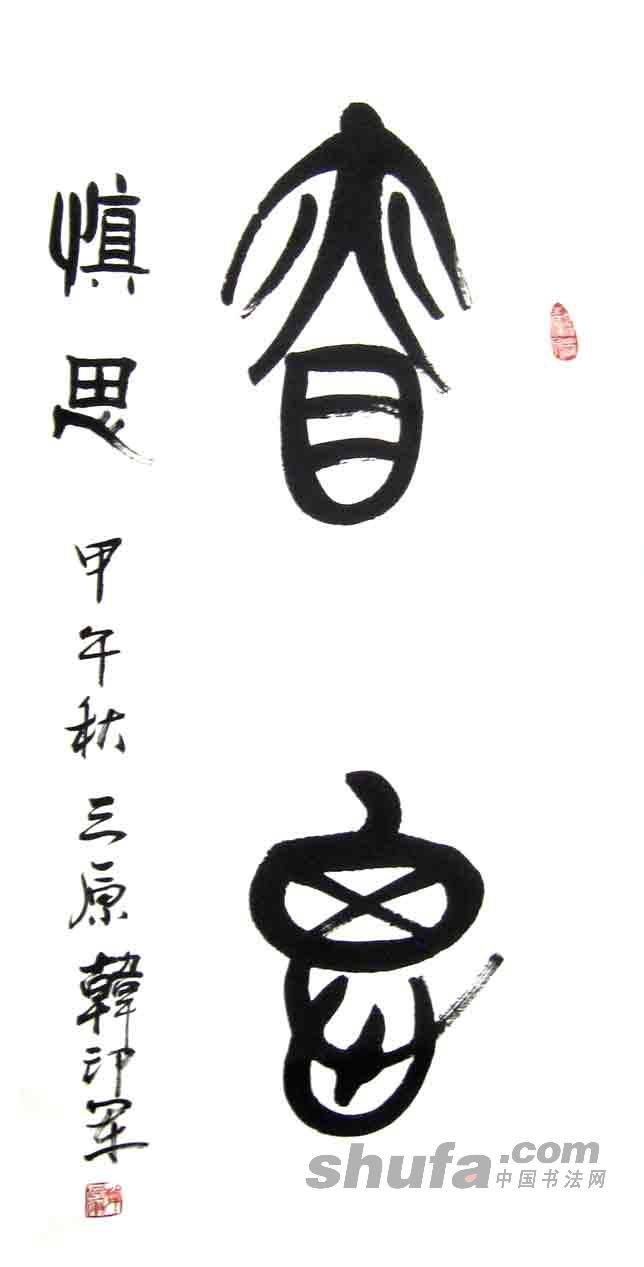 昚思
慎思 甲午秋 三原 韓印军
shufa.com
中国书法网